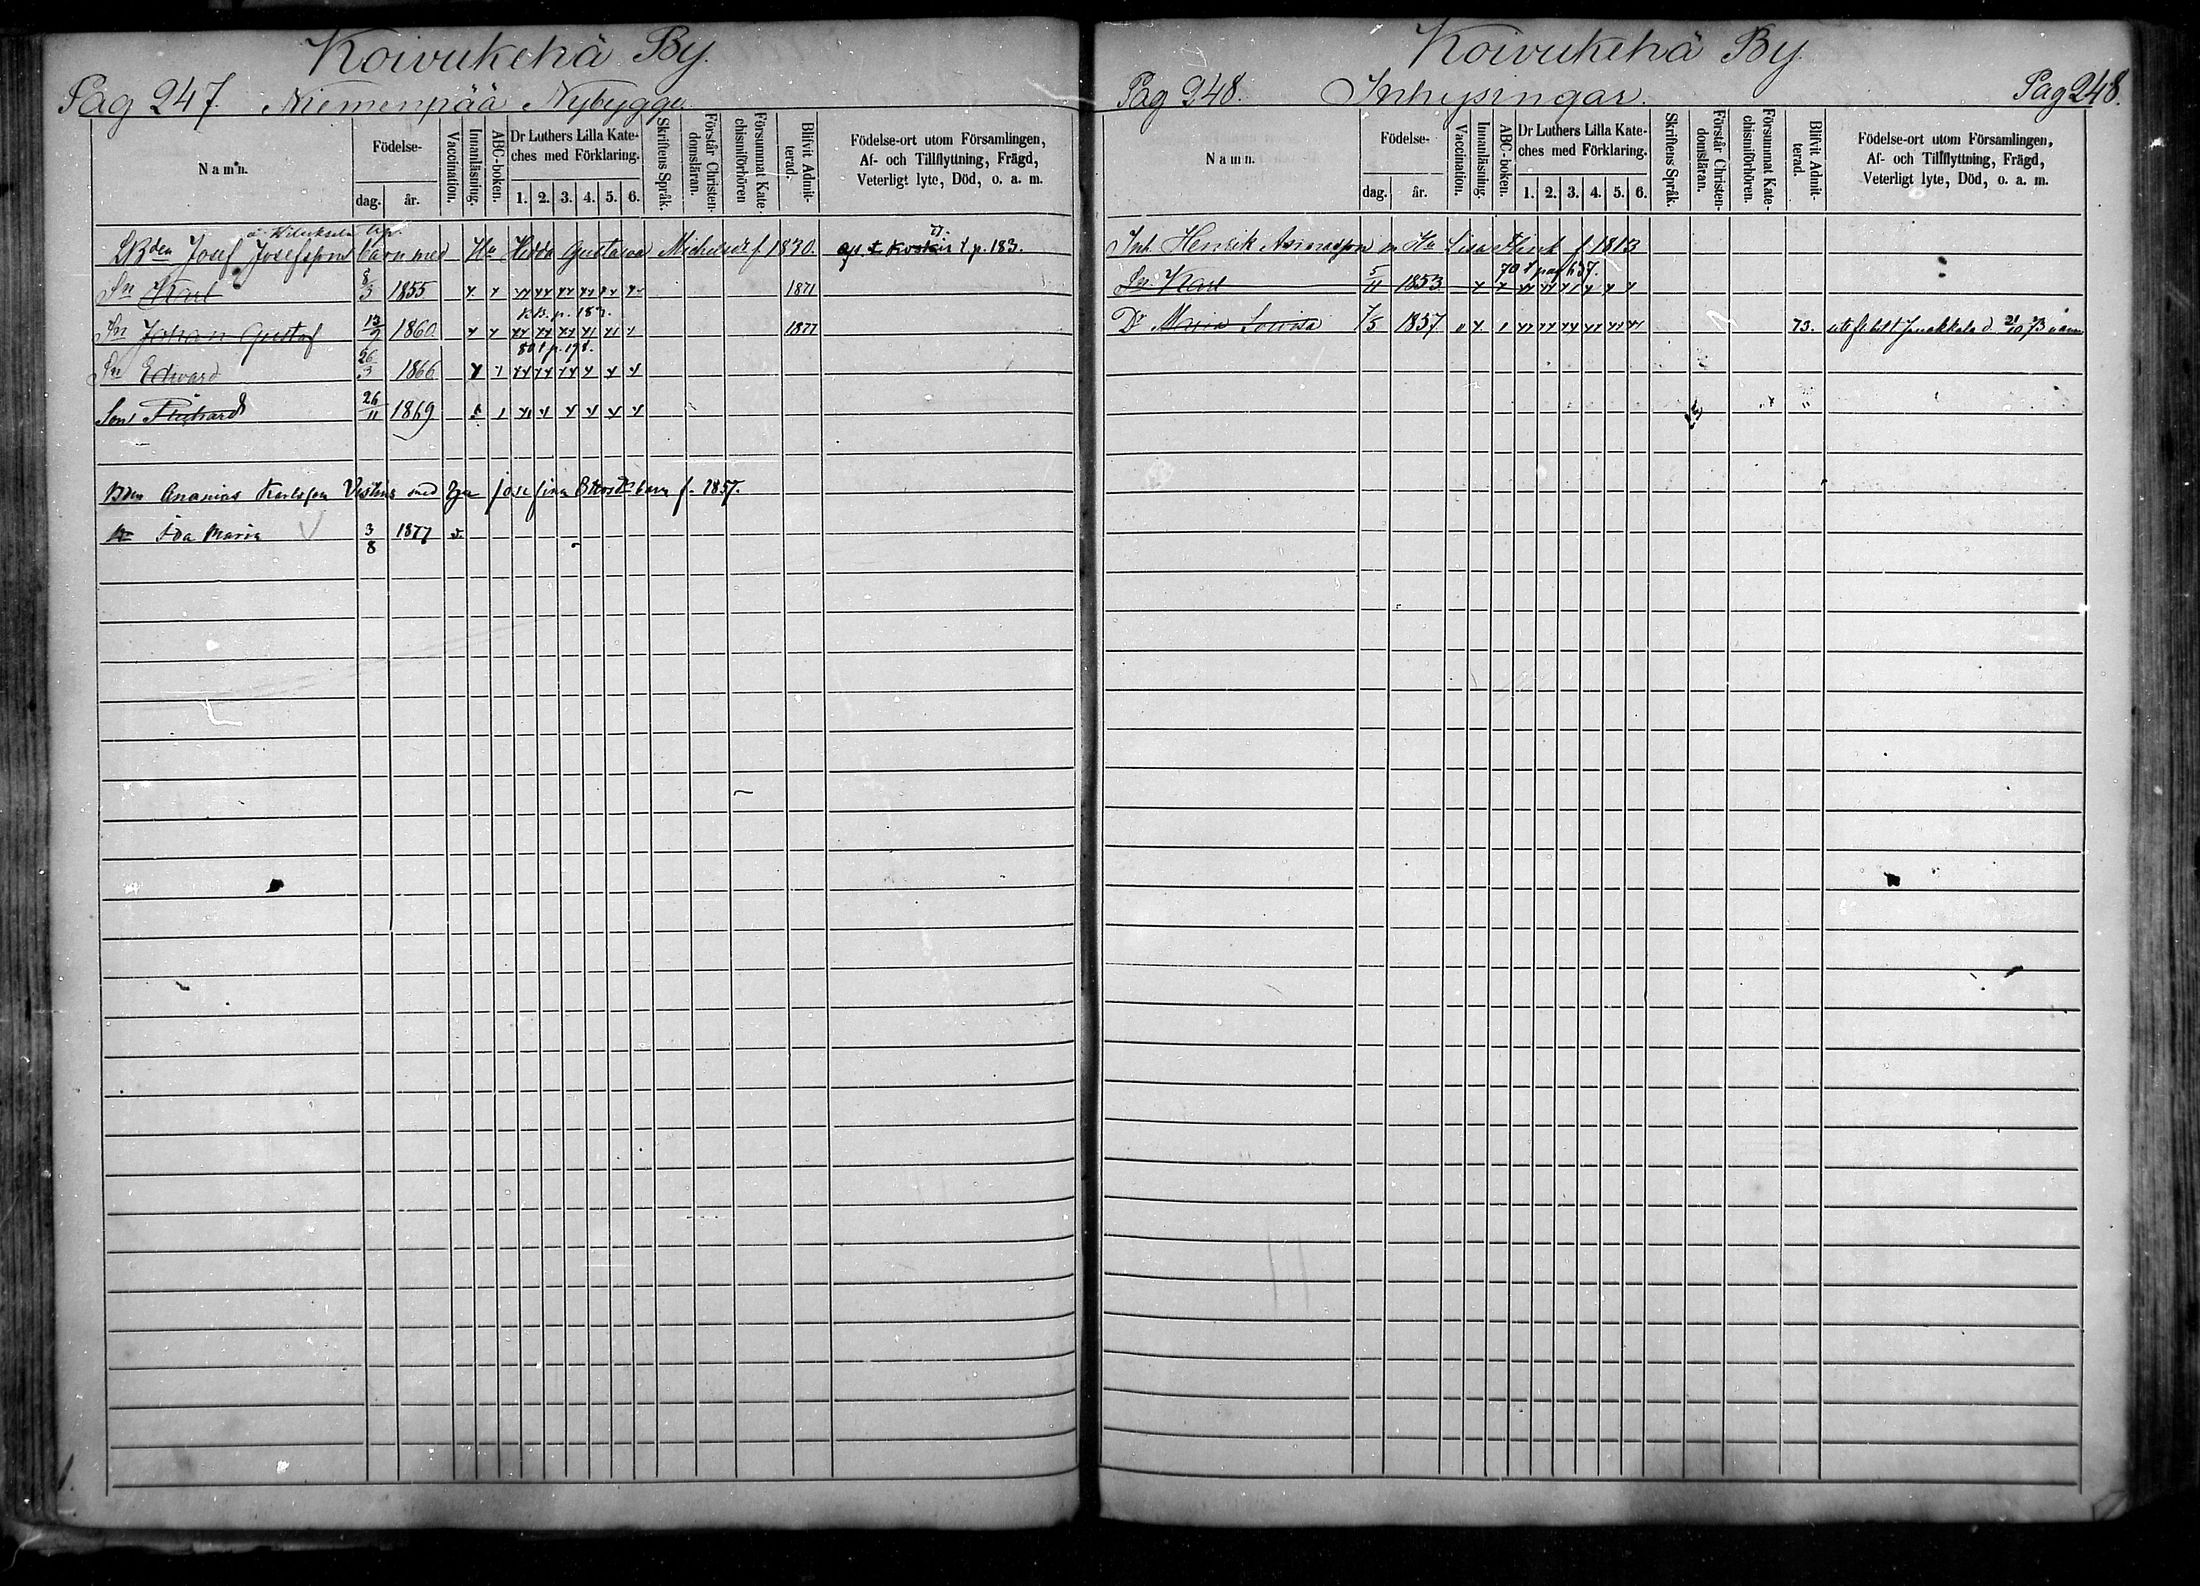 Koivukehä By.
Pag 247. Niemenpää Nybygge
Namn.
Födelse-
dag.
år.
Vaccination.
Innanläsning.
ABC-boken.
Dr Luthers Lilla Kate-
ches med Förklaring.
1. 2. 3. 4. 5. 6.
Skriftens Språk.
Förstår Christen-
domsläran.
Försummat Kate-
chismiförhören
Blifvit Admit-
terad.
Födelse-ort utom Församlingen,
Af- och Tillflyttning, Frägd,
Veterligt lyte, Död, o. a. m.
Josef Josefssons barn med Ha Hedda Gustava f 1830. p. 183.
Sn Karl 8/3 1855 1871
p. 183.
Sn Johan Gustaf 1860 1877
Sn Edvard 26/3 1866
Son 26/11 1869
Bdn Ananias Karlsson med Josefina barn f. 1857.
Dr Ida Maria 3/8 1877 v.
Koivukehä By.
Pag 248. Inhysingar. Pag 248.
Namn.
Födelse-
dag.
år.
Vaccination.
Innanläsning.
ABC-boken.
Dr Luthers Lilla Kate-
ches med Förklaring.
1. 2. 3. 4. 5. 6.
Skriftens Språk.
Förstår Christen-
domsläran.
Försummat Kate-
chismiförhören.
Blifvit Admit-
terad.
Födelse-ort utom Församlingen,
Af- och Tillflyttning, Frägd,
Veterligt lyte, Död, o. a. m.
Inh. Henrik m Ha Lisa f 1813
70 t pag 637.
Sn Karl 5/11 1853
Dr Maria Lovisa 7/5 1857 73.